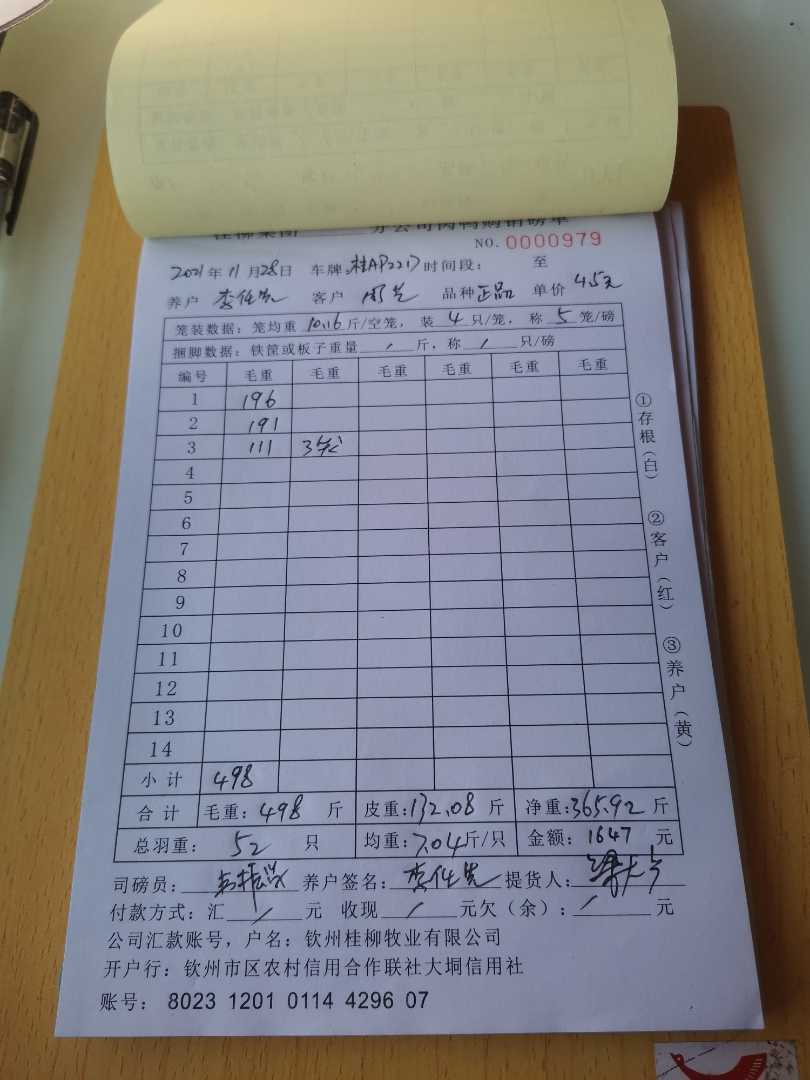 桂柳集团 分公司肉鸭购销磅单
NO. 0000979
2021年11月28日 车牌:桂AP2217 时间段: 至
养户 客户 品种 正品 单价 4.5元
笼装数据:笼均重 10.16 斤/空笼, 装 4 只/笼, 称 5 笼/磅
捆脚数据:铁筐或板子重量 / 斤,称 / 只/磅
编号 毛重 毛重 毛重 毛重 毛重 毛重
1 196
2 191
3 111 3笼
4
5
6
7
8
9
10
11
12
13
14
小计 498
合计 毛重:498 斤 皮重:132.08 斤 净重:365.92 斤
总羽重: 52 只 均重:7.04斤/只 金额:1647 元
司磅员: 养户签名: 提货人:
付款方式:汇 / 元 收现 / 元欠(余): / 元
公司汇款账号,户名:钦州桂柳牧业有限公司
开户行:钦州市区农村信用合作联社大垌信用社
账号: 8023 1201 0114 4296 07
①存根(白)
②客户(红)
③养户(黄)